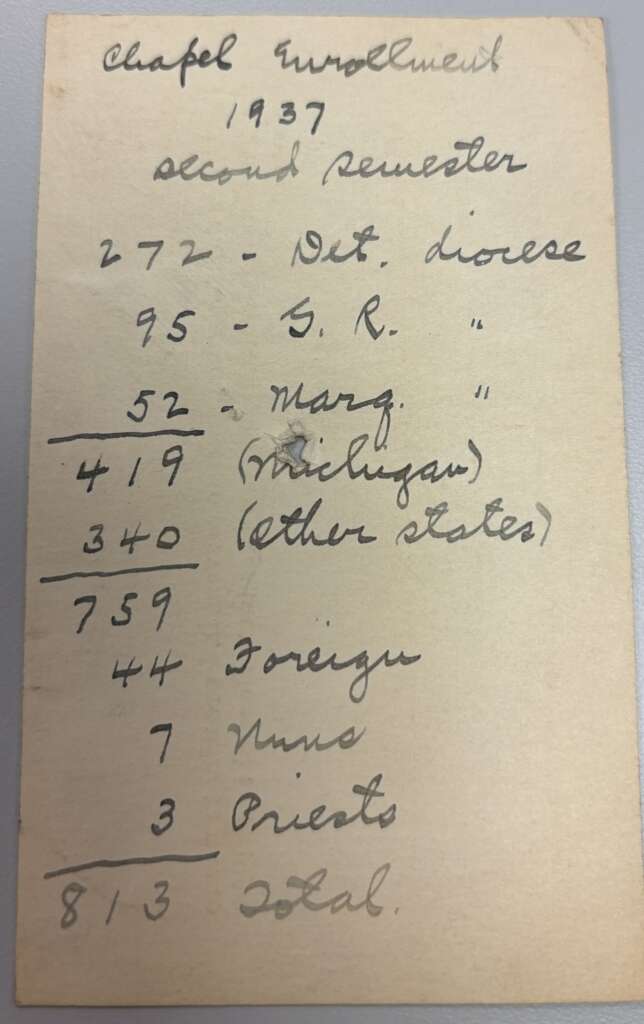 Chapel Enrollment
1937
second semester
272 - Det. diocese
95 - G. R. "
52 - Marq. "
419 (Michigan)
340 (other states)
759
44 Foreign
7 Nuns
3 Priests
813 Total.